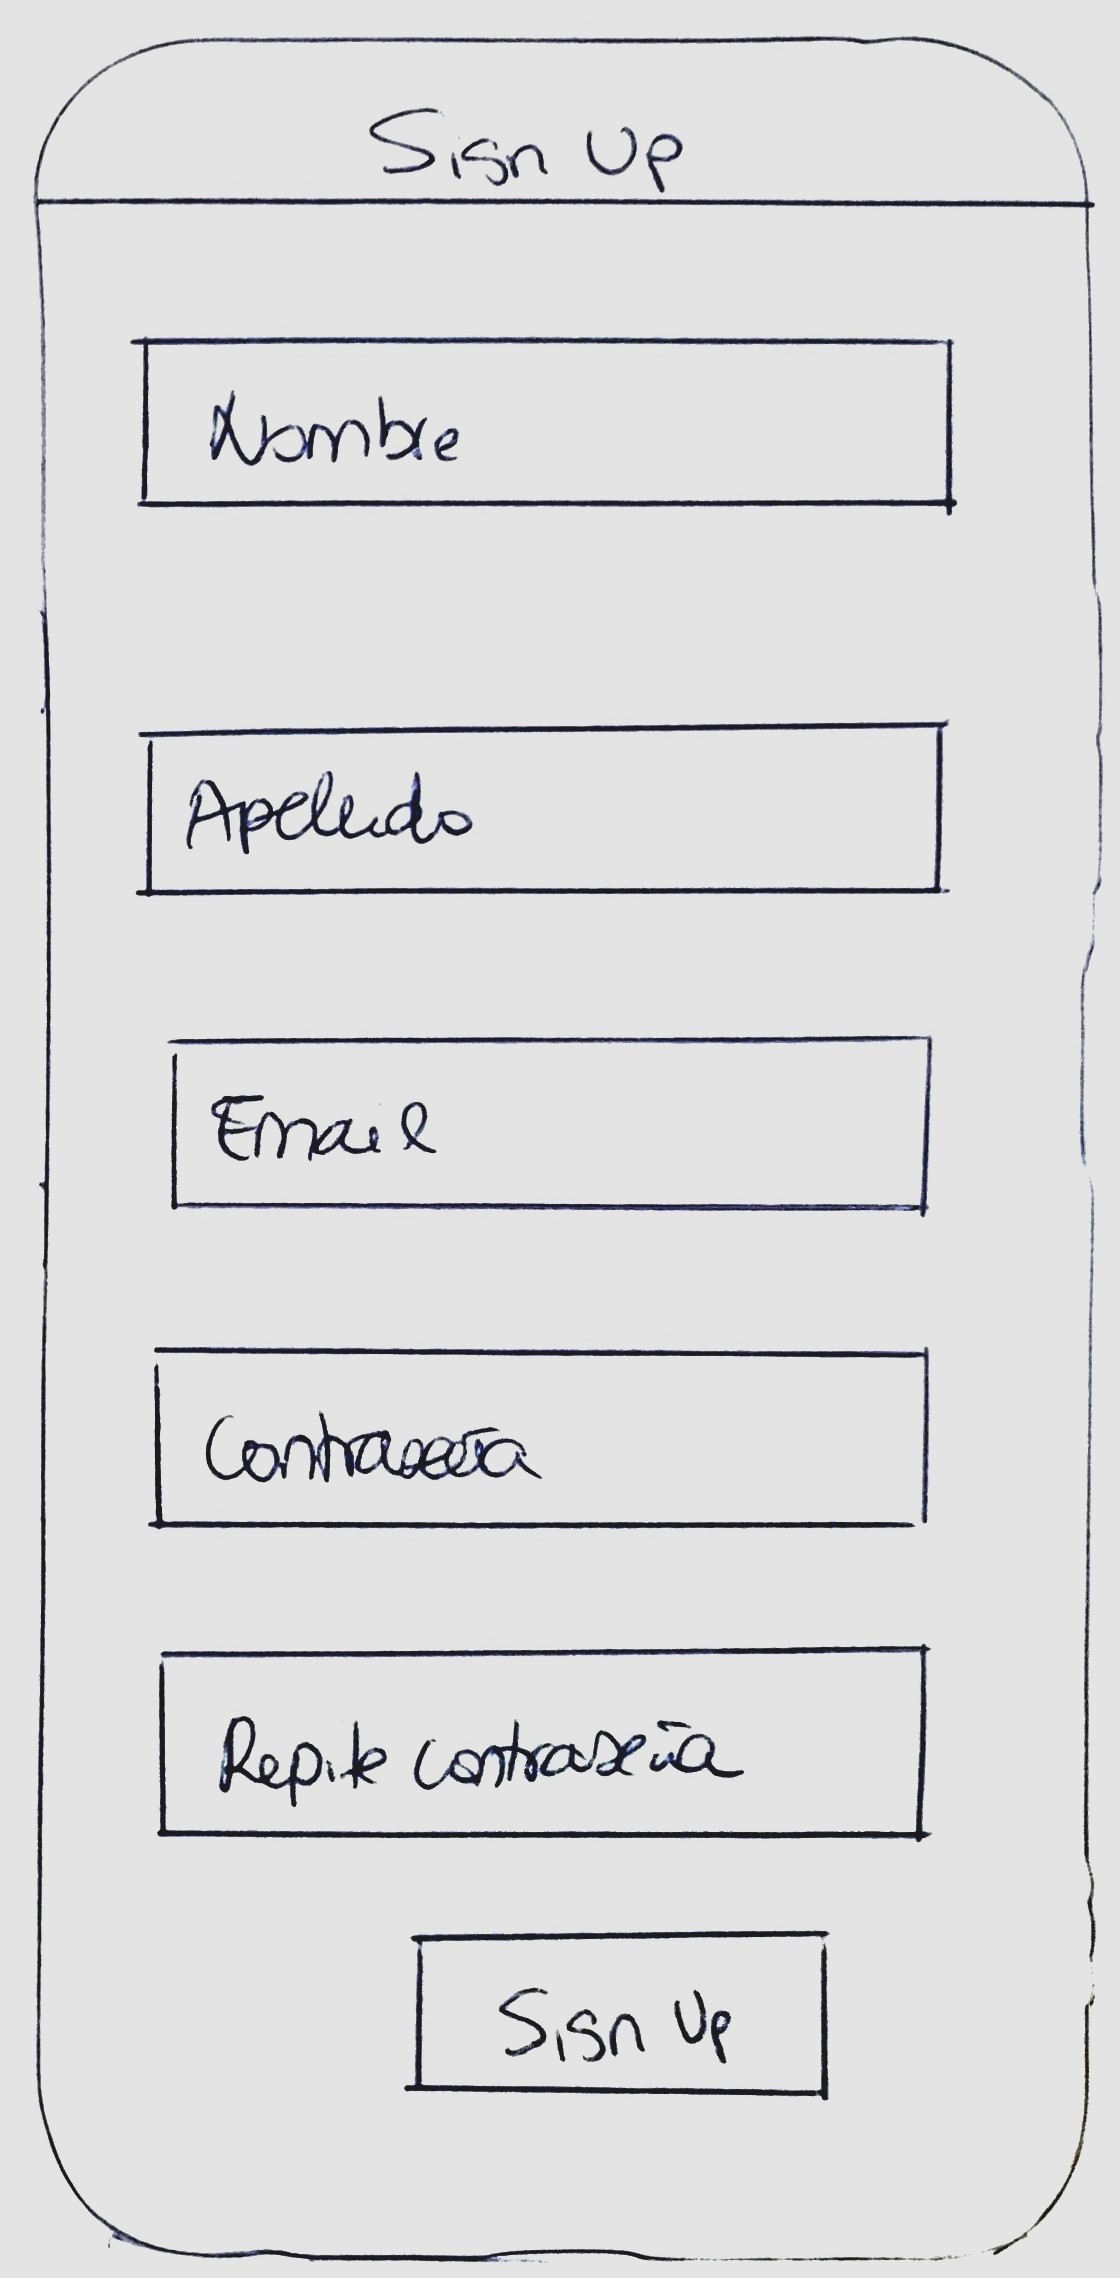 Sign Up
Nombre
Apellido
Email
Contraseña
Repite contraseña
Sign Up